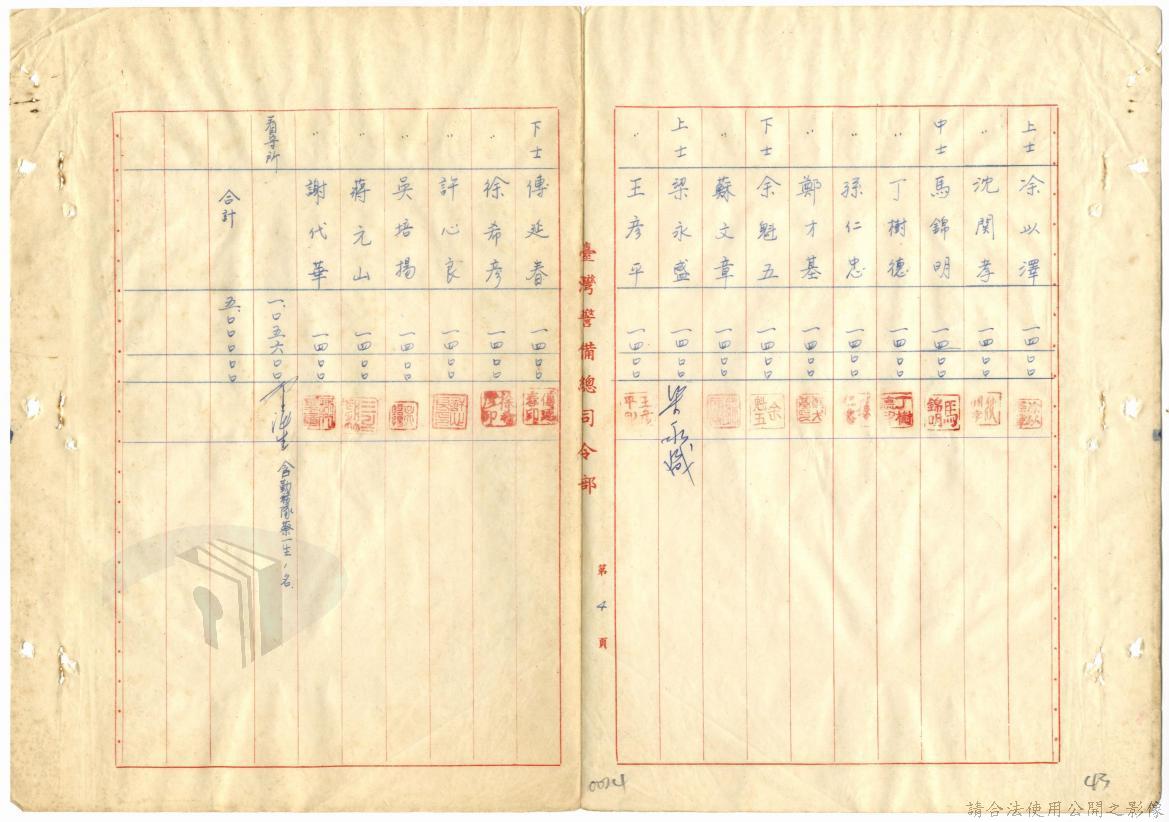 上士 涂以澤 一四〇〇
〃 沈関孝 一四〇〇
中士 馬錦明 一四〇〇
〃 丁樹德 一四〇〇
〃 孫仁忠 一四〇〇
〃 鄭才基 一四〇〇
下士 余魁五 一四〇〇
〃 蘇文章 一四〇〇
上士 梁永盛 一四〇〇 梁永盛
〃 王彥平 一四〇〇
臺灣警備總司令部
第4頁
下士 傅延春 一四〇〇
〃 徐希彥 一四〇〇
〃 許心良 一四〇〇
〃 吳培揚 一四〇〇
〃 蔣元山 一四〇〇
〃 謝代華 一四〇〇
看守所 一.〇五六〇〇 含勤務隊蔡一生1名
合計 五.〇〇〇〇〇
0024
43
請合法使用公開之影像